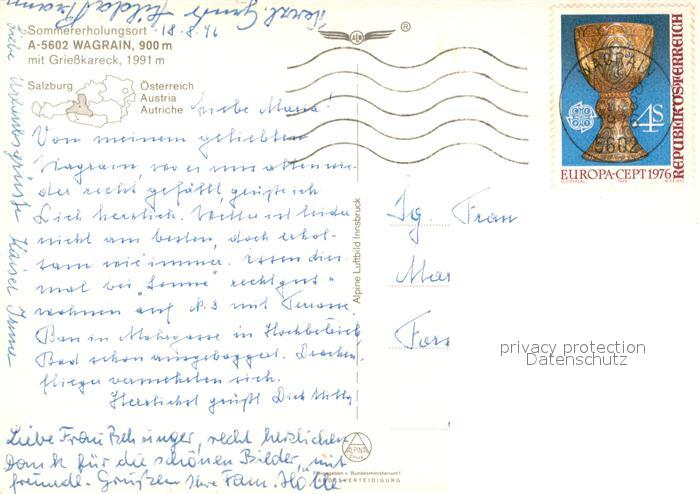 Herzl. Grüße Hilda
18.8.76
Sommererholungsort
A-5602 WAGRAIN, 900 m
mit Grießkareck, 1991 m
Salzburg
Österreich
Austria
Autriche
Liebe Maria!
Von meinem geliebten
Wagrain, wo es uns allen wie-
der recht gefällt, grüße ich
Dich herzlich. Wetter ist leider
nicht am besten, doch erhol-
sam wie immer. Essen dies-
mal bei "Sonne" recht gut -
wohnen auf N. 3 mit Terrasse.
Bau in in Hochbetrieb,
Bad schon ausgebaggert. Drachen-
flieger vermehrten sich.
Herzlichst grüßt Dich
Liebe Frau recht herzlichen
Dank für die schönen Bilder, mit
Freunde. Grüßen Ihre Fam. Hölle
Liebe Urlaubsgrüße Kaiser Irma
Alpine Luftbild Innsbruck
ALPINE
Freigegeben v. Bundesministerium f.
LANDESVERTEIDIGUNG
Sg. Frau
Mar
Fors
privacy protection
Datenschutz
5602
4S
REPUBLIK ÖSTERREICH
EUROPA-CEPT 1976
®